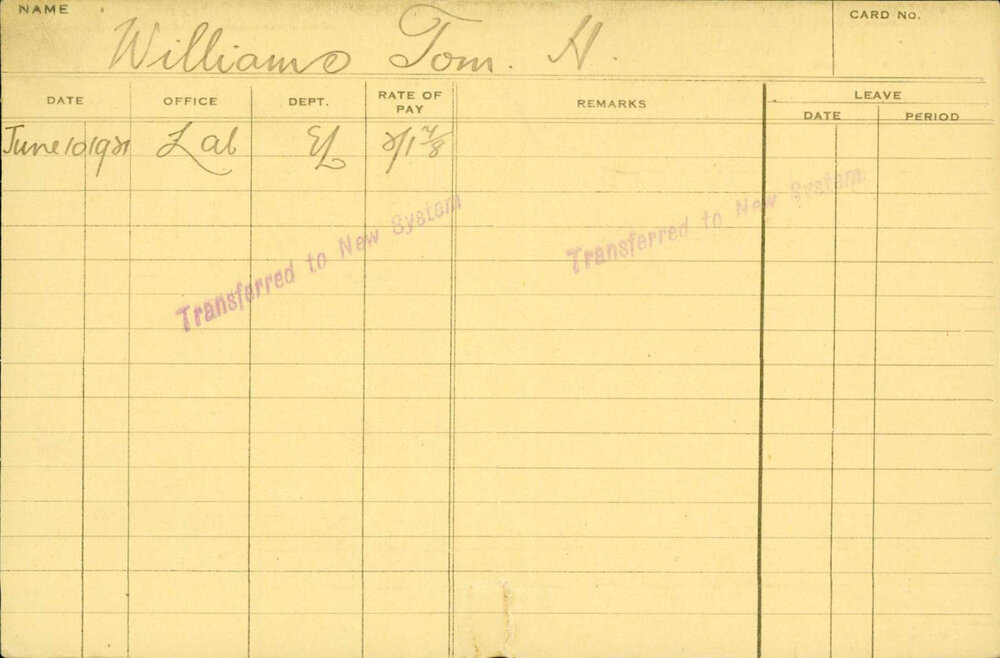 NAME
Williams Tom. H.
CARD No.
DATE OFFICE DEPT. RATE OF PAY REMARKS LEAVE
DATE PERIOD
June 10 1921 Lab El 2/1 7/8
Transferred to New System
Transferred to New System